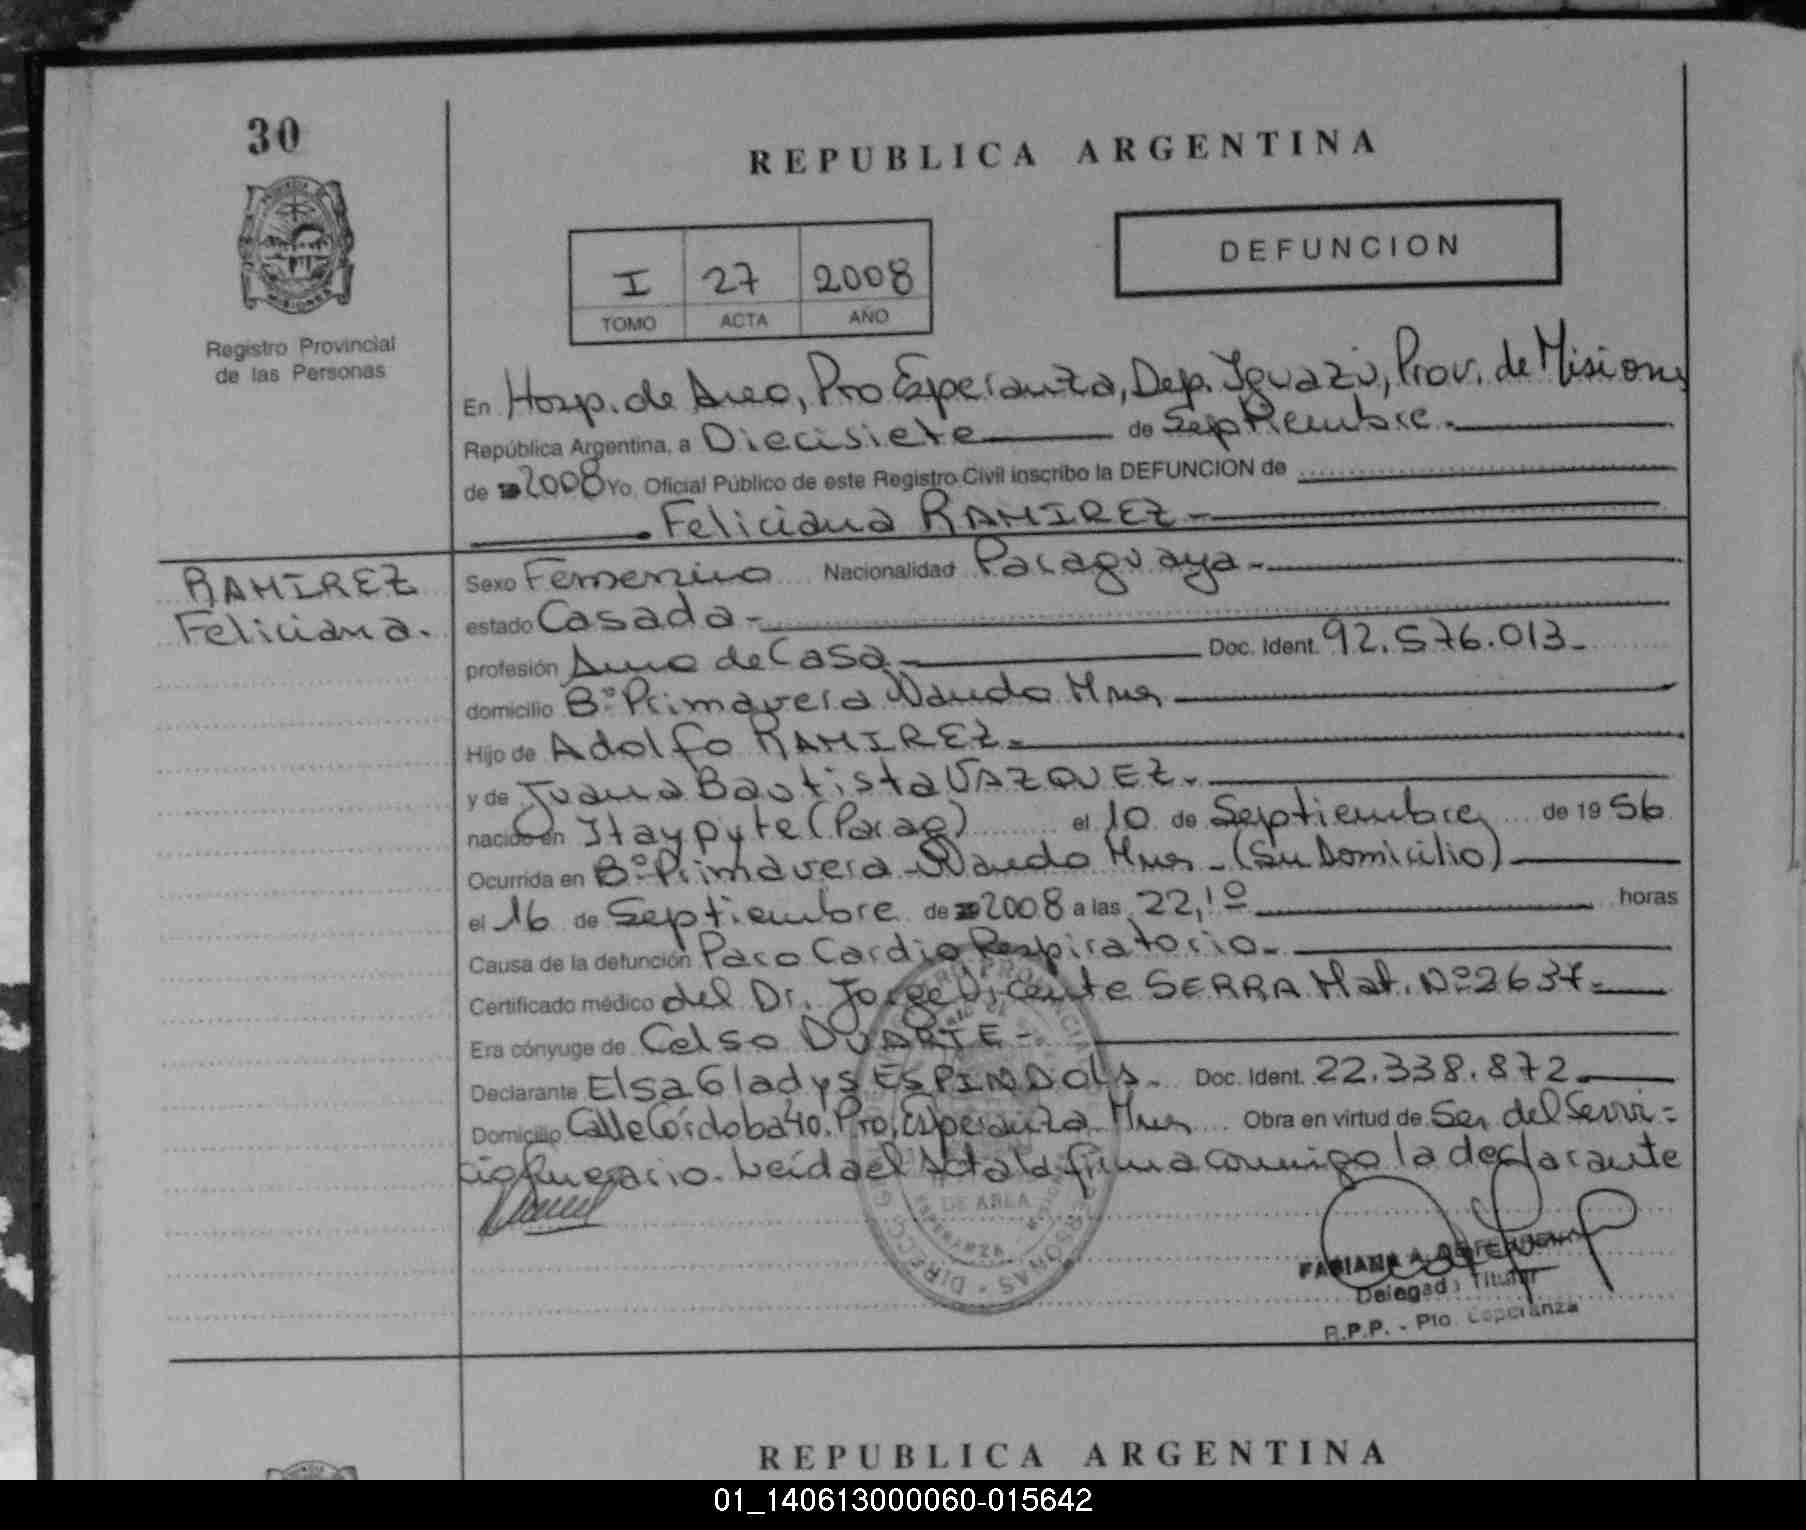 30
REPUBLICA ARGENTINA
DEFUNCION
I 27 2008
TOMO ACTA AÑO
Registro Provincial
de las Personas
En Hosp. de Area, Pto Esperanza, Dep. Iguazú, Prov. de Misiones
República Argentina, a Diecisiete de Septiembre.-
de 2008 Yo, Oficial Público de este Registro Civil inscribo la DEFUNCION de
Feliciana RAMIREZ-
RAMIREZ
Feliciana.
Sexo Femenino Nacionalidad Paraguaya-
estado Casada-
profesión Ama de Casa Doc. Ident. 92.576.013-
domicilio B° Primavera Wanda Mnes
Hijo de Adolfo RAMIREZ-
y de Juana Bautista VAZQUEZ-
nacido en Itaypyte (Parag) el 10 de Septiembre de 19 56
Ocurrida en B° Primavera-Wanda Mnes-(Su Domicilio)
el 16 de Septiembre de 2008 a las 22,1º horas
Causa de la defunción Paro Cardio Respiratorio-
Certificado médico del Dr. Jorge Vicente SERRA Mat. Nº 2637-
Era cónyuge de Celso DUARTE-
Declarante Elsa Gladys ESPINDOLA- Doc. Ident. 22.338.872
Domicilio Calle Córdoba 40. Pto, Esperanza Mnes Obra en virtud de Ser del Servi=
cio funerario. Leída el Acta la firma conmigo la declarante
DE AREA
FABIANA A.
Delegada Titular
R.P.P. - Pto. Esperanza
REPUBLICA ARGENTINA
01_140613000060-015642